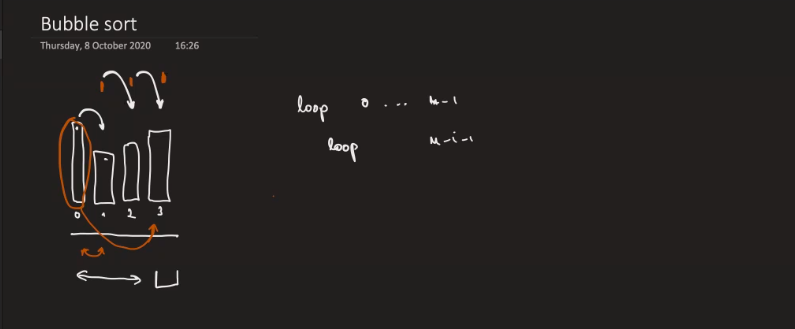 Bubble sort
Thursday, 8 October 2020 16:26
loop 0 ... n-1
loop n-i-1
0 1 2 3